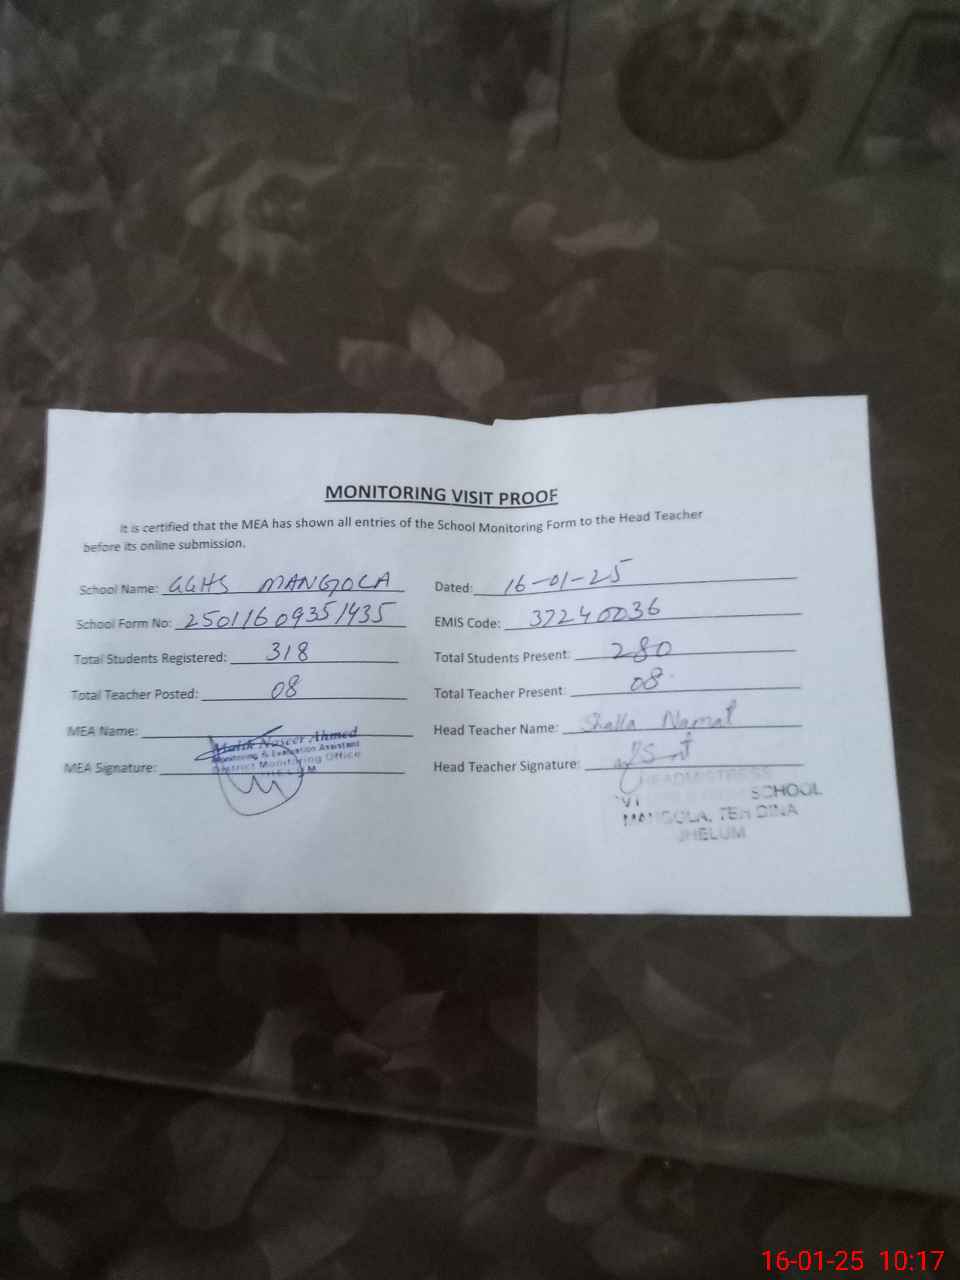 MONITORING VISIT PROOF
It is certified that the MEA has shown all entries of the School Monitoring Form to the Head Teacher
before its online submission.
School Name: GGHS MANGOLA Dated: 16-01-25
School Form No: 25011609351435 EMIS Code: 37240036
Total Students Registered: 318 Total Students Present: 280
Total Teacher Posted: 08 Total Teacher Present: 08
MEA Name: Head Teacher Name:
Malik Naseer Ahmed
Monitoring & Evaluation Assistant
District Monitoring Office
JHELUM
MEA Signature: Head Teacher Signature:
HEADMISTRESS
SCHOOL
MANGOLA, TEH DINA
JHELUM
16-01-25 10:17